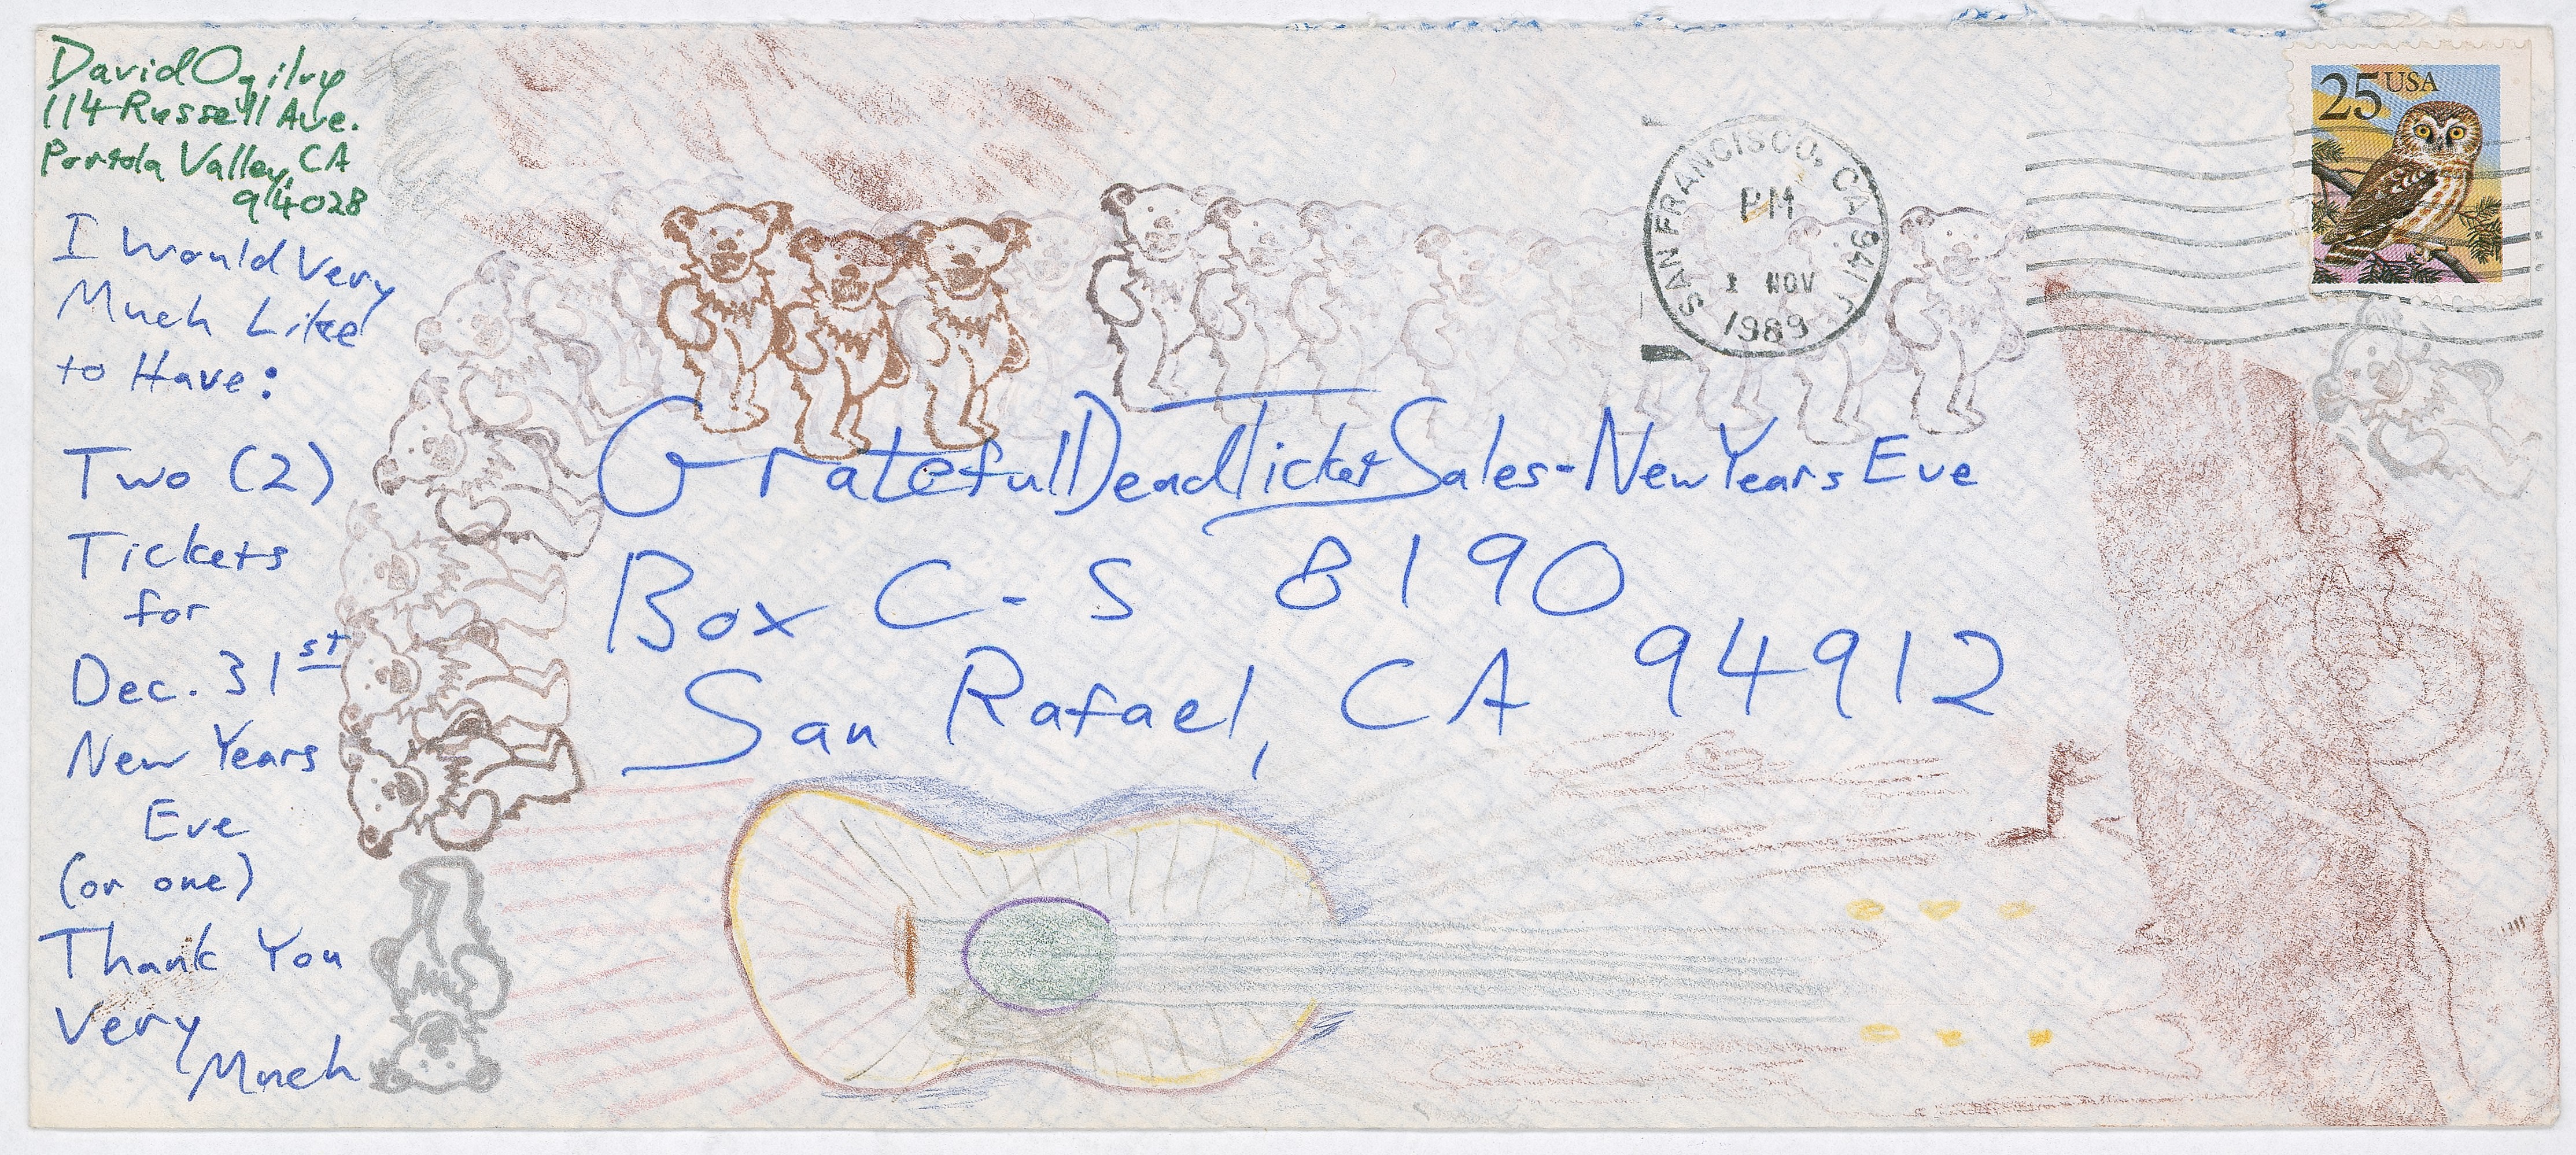 David Ogilvy
114 Russell Ave.
Portola Valley, CA
94028
I Would Very
Much Like
to Have:
Two (2)
Tickets
for
Dec. 31st
New Years
Eve
(or one)
Thank You
Very
Much
SAN FRANCISCO, CA 941
PM
1 NOV
1989
25 USA
Grateful Dead Ticket Sales - New Years Eve
Box C-S 8190
San Rafael, CA 94912